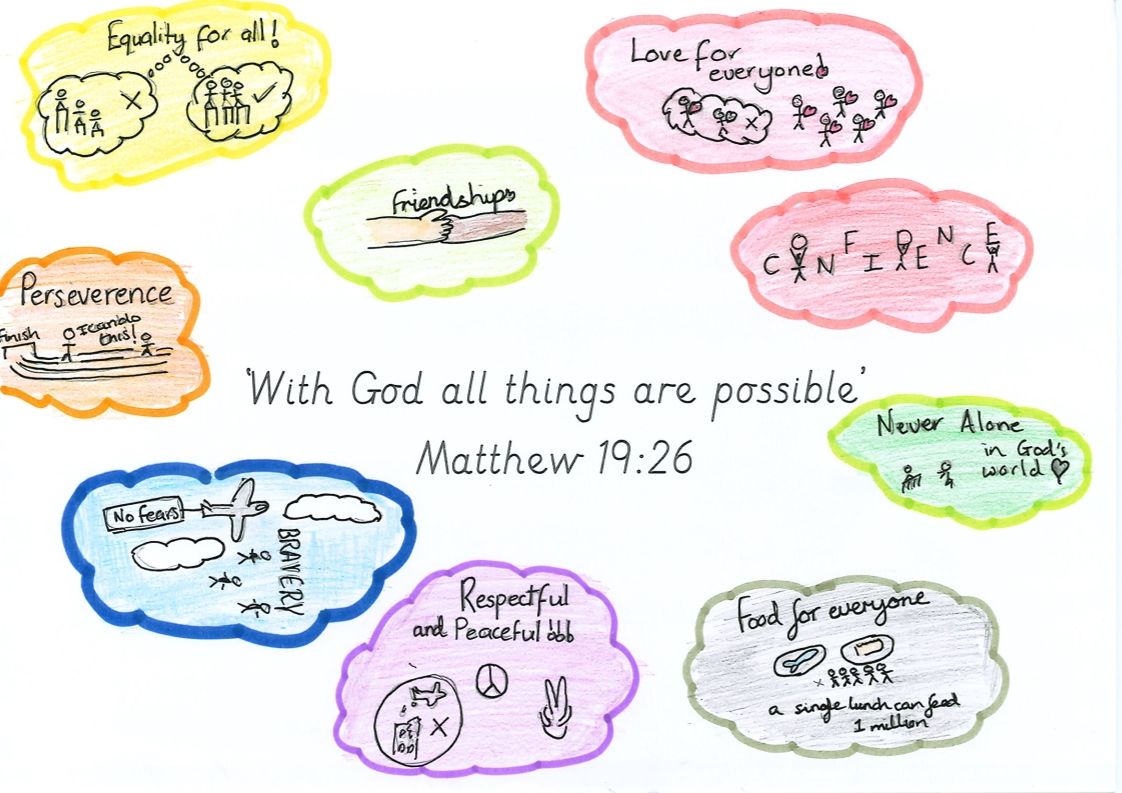 Equality for all!
Love for
everyone!
Friendships
CONFIDENCE
Perseverence
Finish
I can do
this!
'With God all things are possible'
Matthew 19:26
Never Alone
in God's
world
No fears
BRAVERY
Respectful
and Peaceful
Food for everyone
a single lunch can feed
1 million